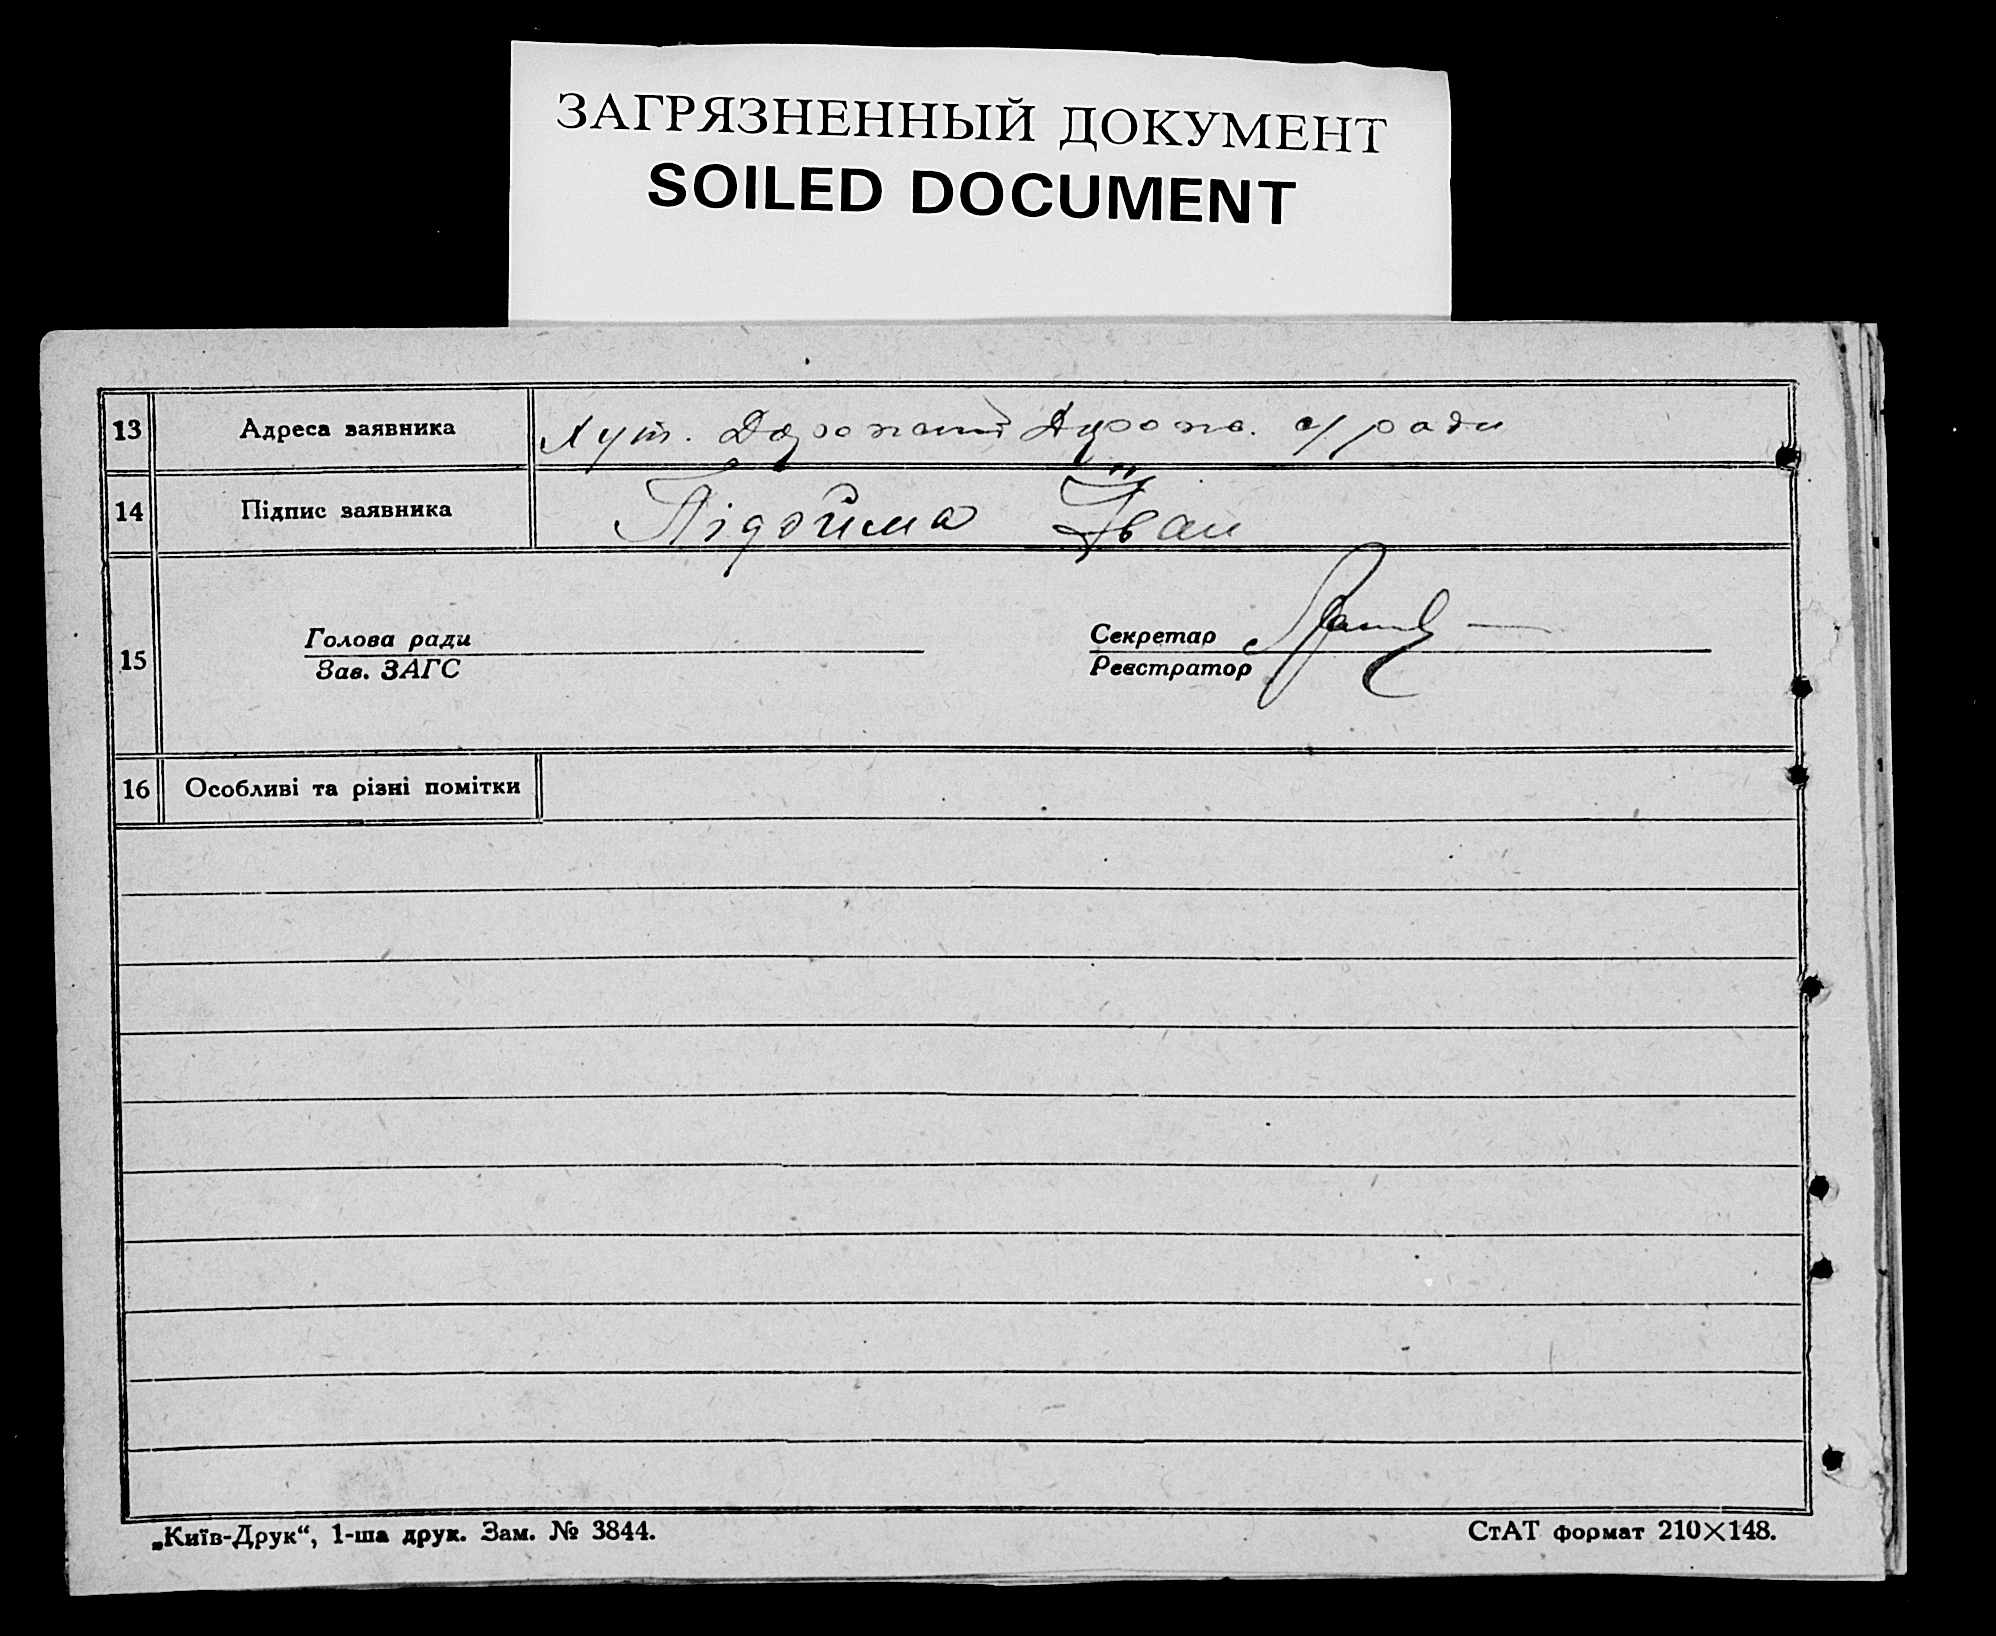 ЗАГРЯЗНЕННЫЙ ДОКУМЕНТ
SOILED DOCUMENT
13 Адреса заявника Хут. с/ ради
14 Підпис заявника Підойма Іван
Голова ради Секретар
15
Зав. ЗАГС Реєстратор
16 Особливі та різні помітки
„Київ-Друк“, 1-ша друк. Зам. № 3844. СтАТ формат 210×148.